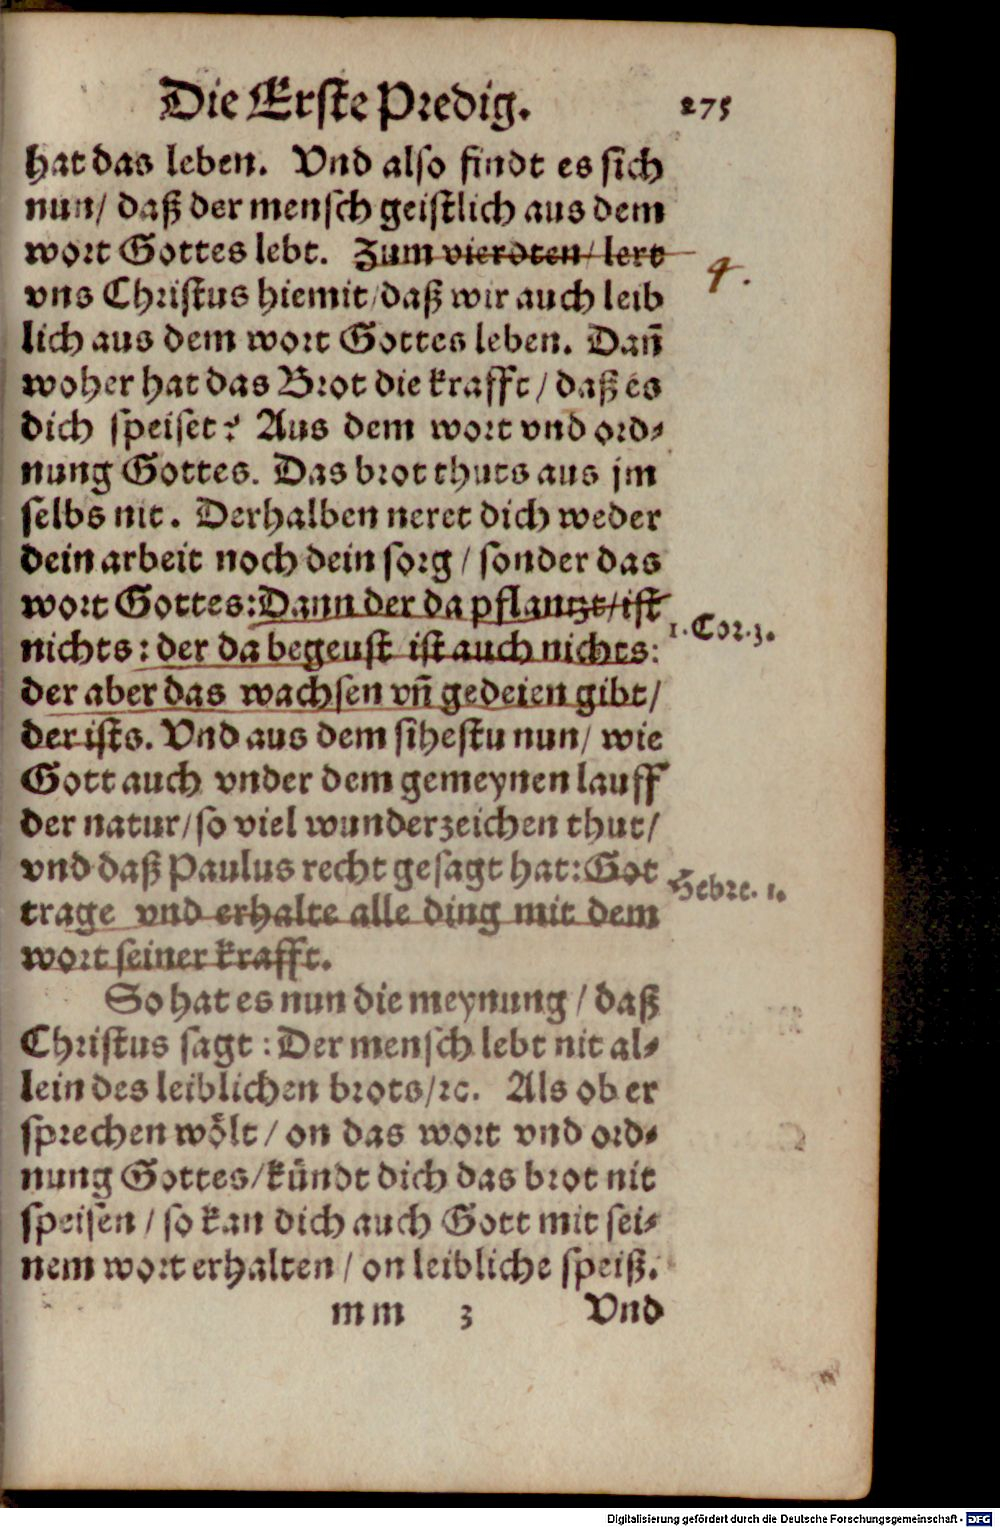 Die Erste Predig. 275
hat das leben. Vnd also findt es sich
nun/ daß der mensch geistlich aus dem
wort Gottes lebt. Zum vierdten/ lert
4.
vns Christus hiemit/daß wir auch leib
lich aus dem wort Gottes leben. Dañ
woher hat das Brot die krafft/ daß es
dich speiset? Aus dem wort vnd ord⸗
nung Gottes. Das brot thuts aus jm
selbs nit. Derhalben neret dich weder
dein arbeit noch dein sorg/ sonder das
wort Gottes: Dann der da pflantzt/ist
1. Cor. 3.
nichts: der da begeust ist auch nichts:
der aber das wachsen vñ gedeien gibt/
der ists. Vnd aus dem sihestu nun/ wie
Gott auch vnder dem gemeynen lauff
der natur/so viel wunderzeichen thut/
vnd daß Paulus recht gesagt hat: Got
Hebre. 1.
trage vnd erhalte alle ding mit dem
wort seiner krafft.
So hat es nun die meynung/ daß
Christus sagt: Der mensch lebt nit al⸗
lein des leiblichen brots/ꝛc. Als ob er
sprechen wölt/ on das wort vnd ord⸗
nung Gottes/kündt dich das brot nit
speisen/ so kan dich auch Gott mit sei⸗
nem wort erhalten/ on leibliche speiß.
mm 3 Vnd
Digitalisierung gefördert durch die Deutsche Forschungsgemeinschaft - DFG